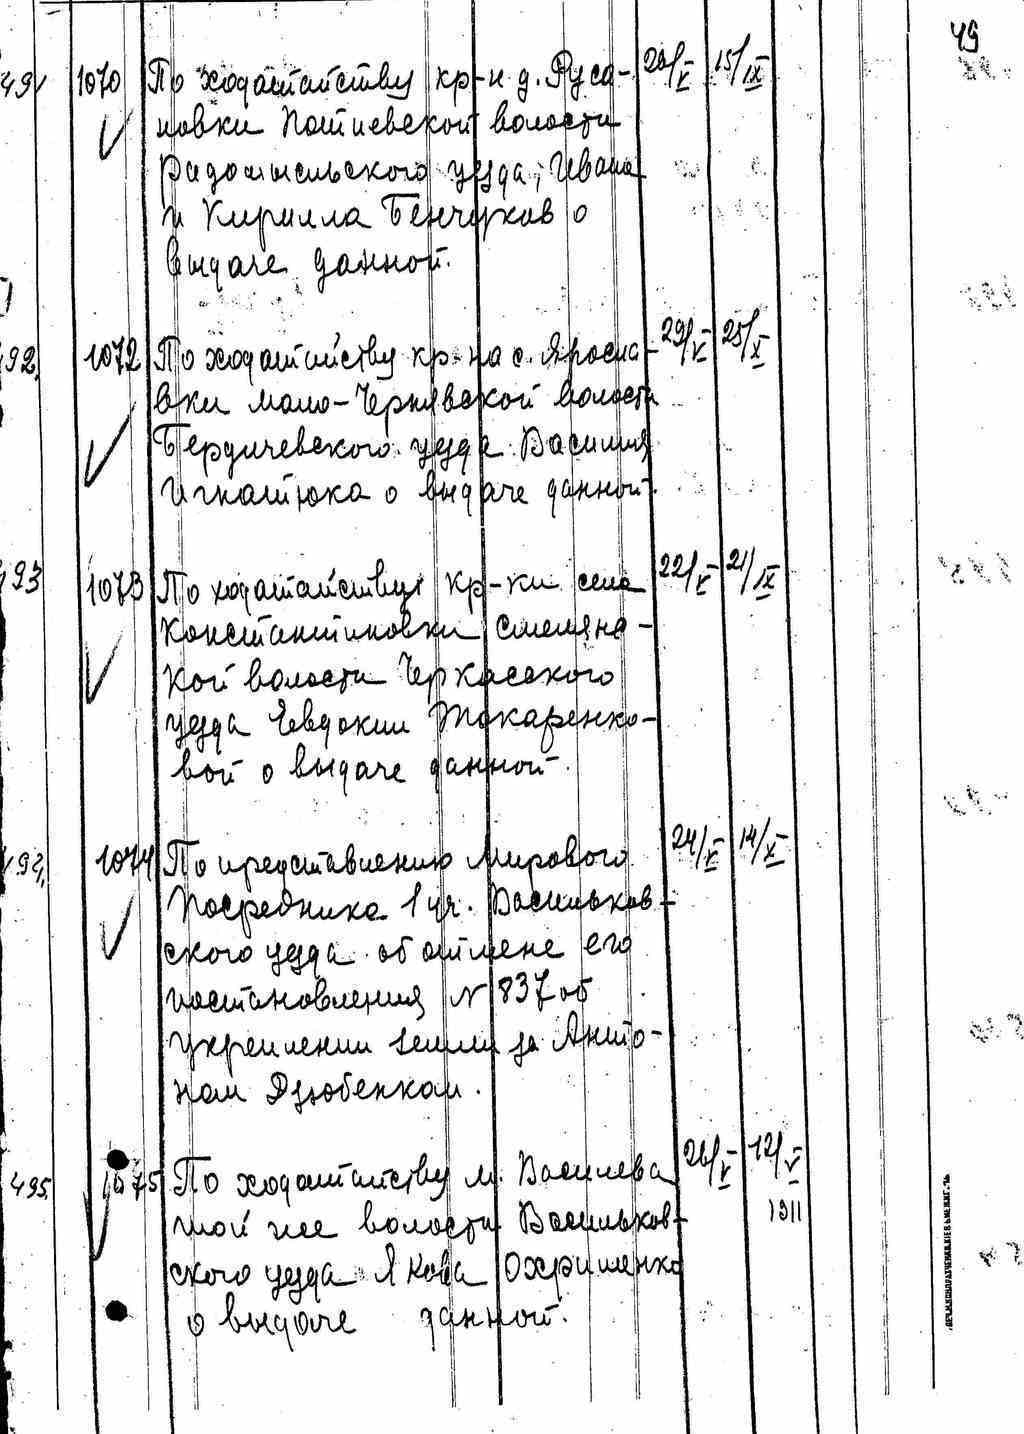 49
491 1070 По ходатайству кр-н д. Руса- 20/V 15/IX
новки Потиевской волости
Радомысльского уезда, Ивана
и Кирилла Бенчуков о
выдаче данной.
492. 1072 По ходатайству кр-на с. Яросла- 29/V 25/X
вки мало-Чернявской волости
Бердичевского уезда Василия
Игнатюка о выдаче данной.
493 1073 По ходатайству кр-ки села 22/V 21/IX
Константиновки смелянс-
кой волости Черкасского
уезда Евдокии Токаренко-
вой о выдаче данной.
494. 1074 По представлению Мирового 24/V 14/X
Посредника 1 уч. Васильков-
ского уезда об отмене его
постановления N 837 об
укреплении земли за Анто-
ном Дзюбенком.
495. 1075 По ходатайству м. Василева 26/V 12/V
той же волости Васильков- 1911
ского уезда Якова Охрименко
о выдаче данной.